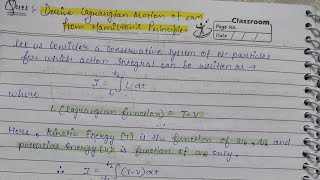 Ques: Derive Lagrangian Motion of
from Hamilton's Principle.
Classroom
Page No.
Let us Consider a Conservative System of N- particles
for which action Integral can be written as →
J = ∫ L dt
where
L (Lagrangian function) = T-V
Here, Kinetic Energy (T) is the function of and
potential Energy (V) is function of only.
∴ J = ∫ (T-V) dt